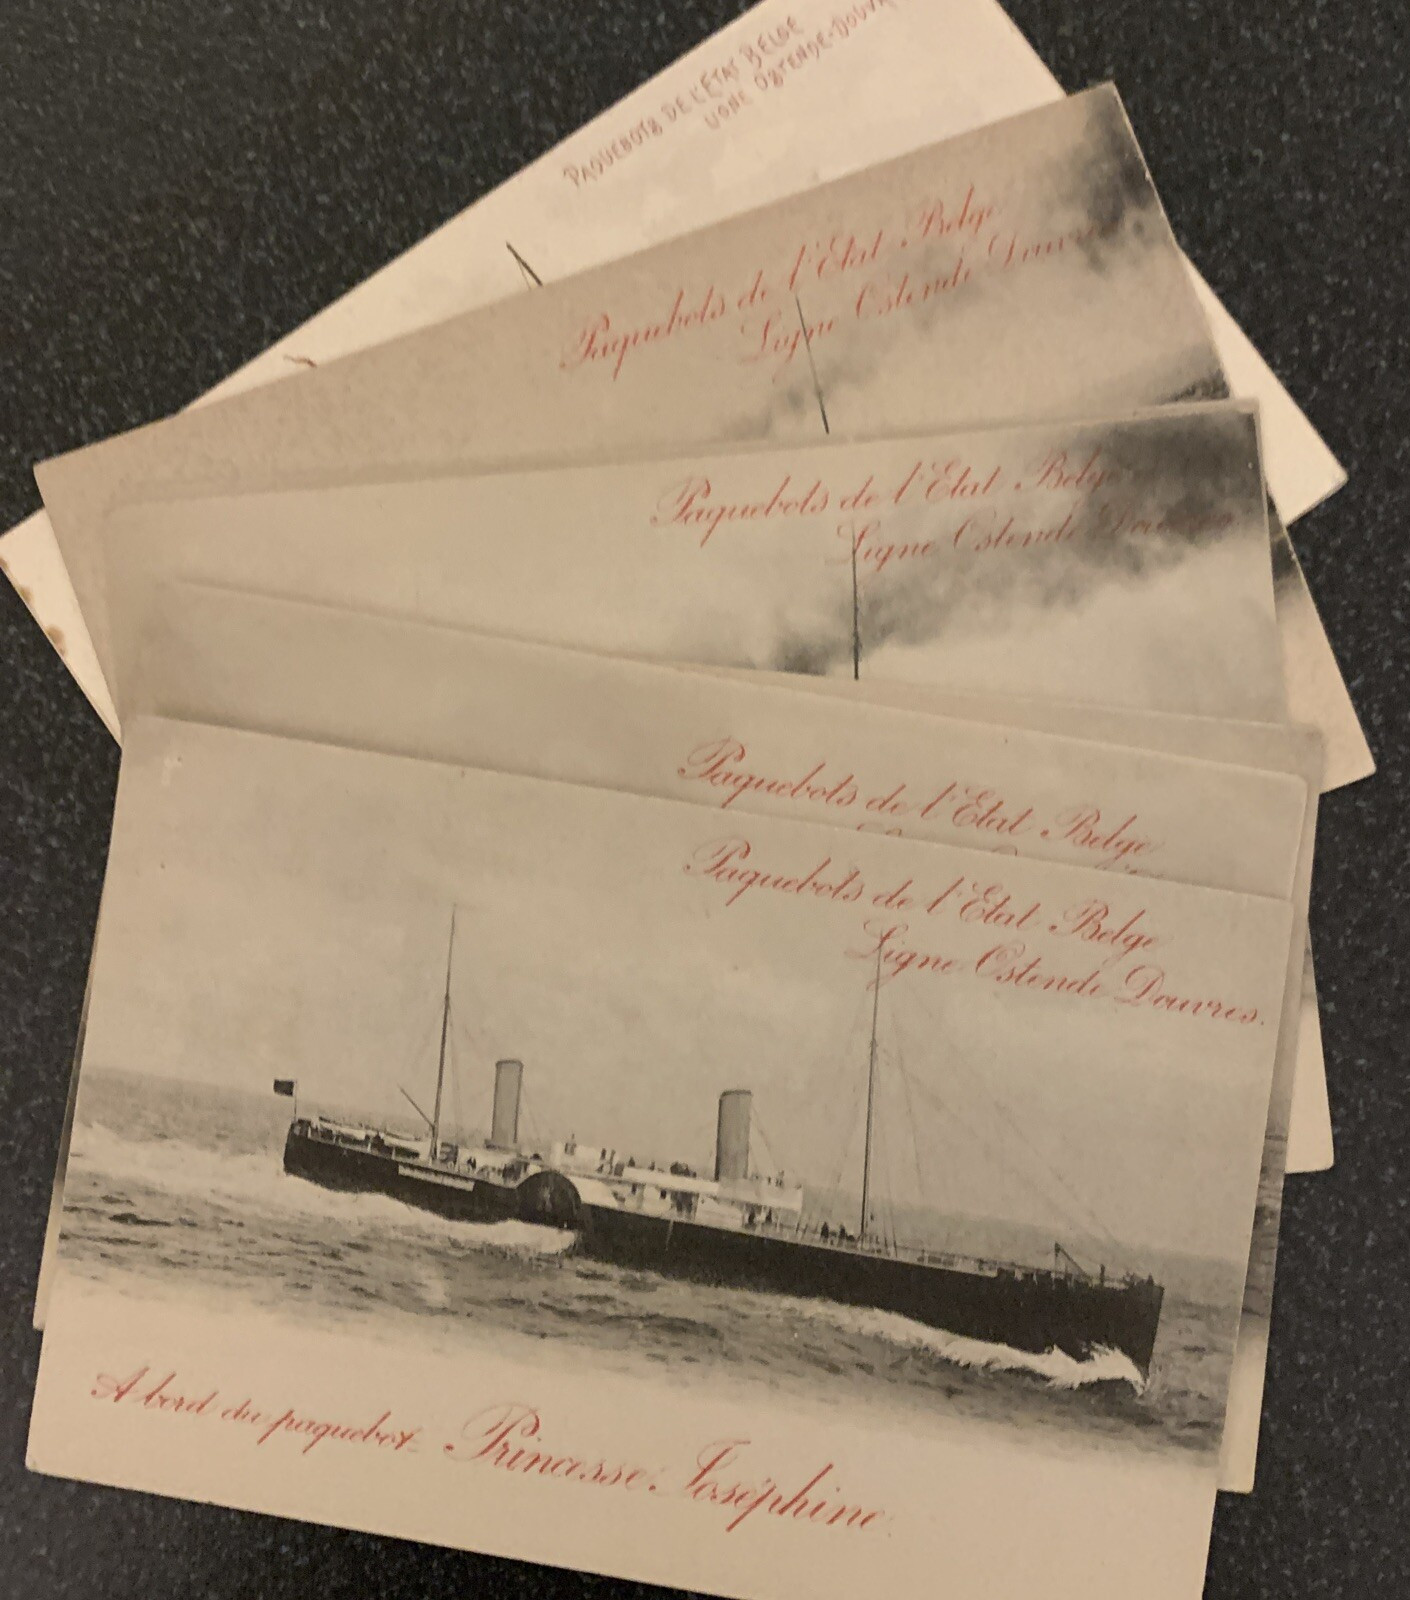 PAQUEBOTS DE L'ÉTAT BELGE
LIGNE OSTENDE-DOUVR
Paquebots de l'Etat Belge
Ligne Ostende Douvres
Paquebots de l'Etat Belge
Ligne Ostende Douvres
Paquebots de l'Etat Belge
Paquebots de l'Etat Belge
Ligne Ostende Douvres.
A bord du paquebot Princesse Joséphine.